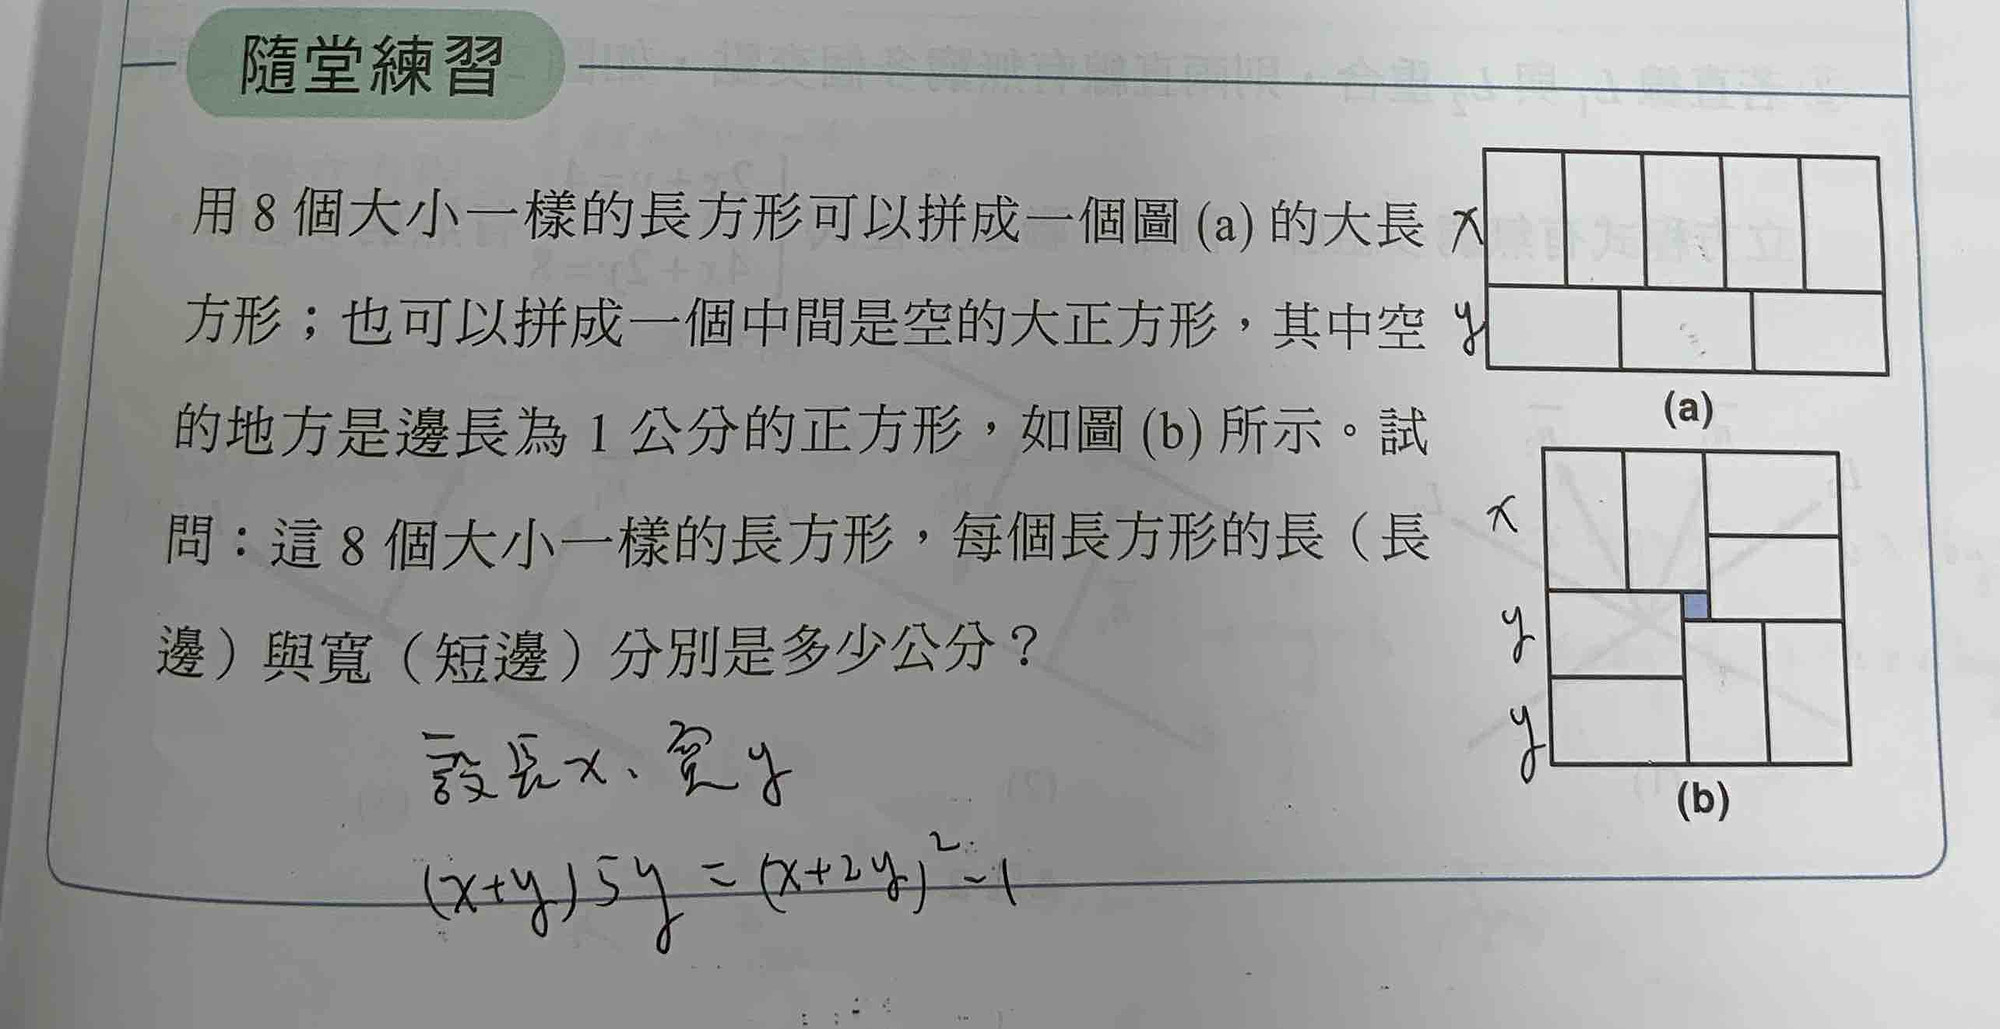 隨堂練習
用 8 個大小一樣的長方形可以拼成一個圖 (a) 的大長
方形；也可以拼成一個中間是空的大正方形，其中空
的地方是邊長為 1 公分的正方形，如圖 (b) 所示。試
問：這 8 個大小一樣的長方形，每個長方形的長（長
邊）與寬（短邊）分別是多少公分？
x
y
(a)
x
y
y
(b)
設長x、寬y
(x+y)5y=(x+2y)²-1